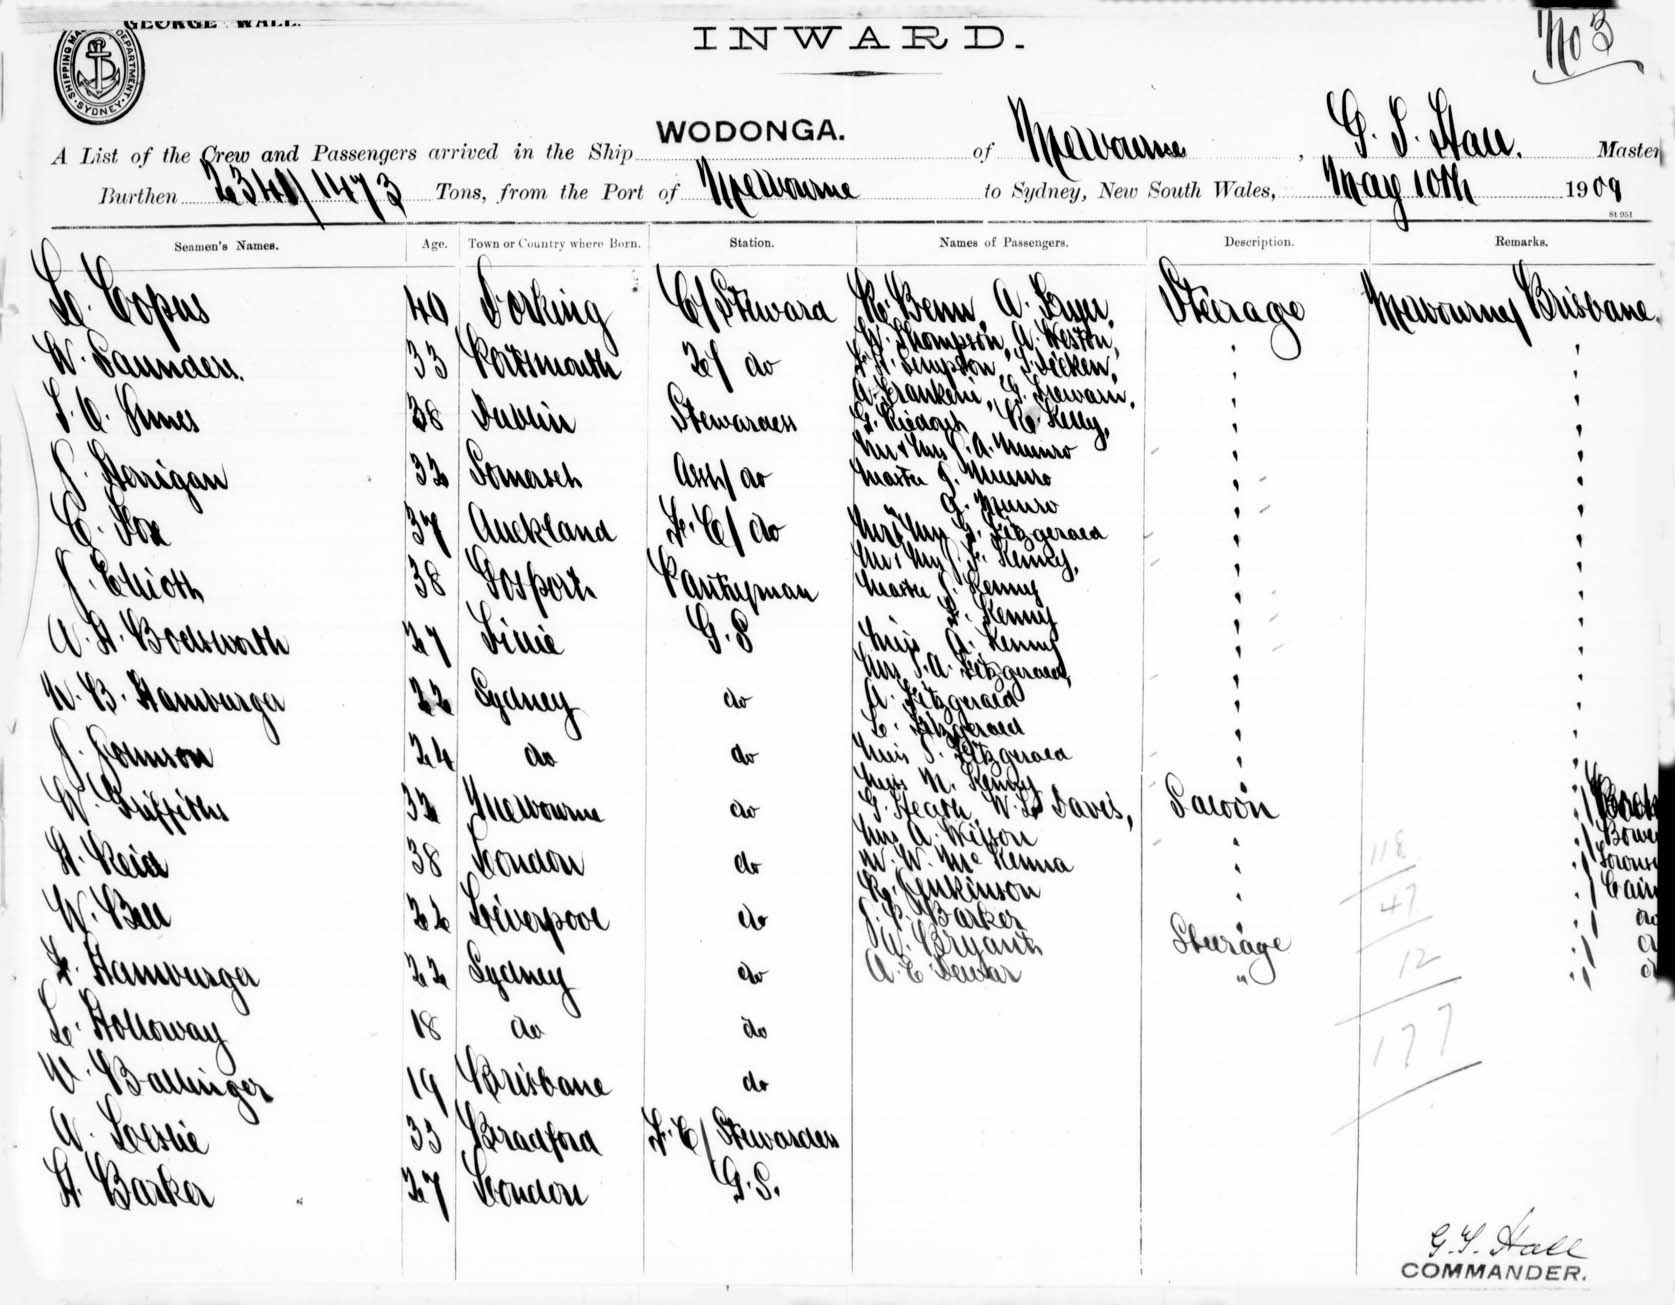 GEORGE WALL.
SHIPPING MA DEPARTMENT. SYDNEY
INWARD.
No 3
A List of the Crew and Passengers arrived in the Ship WODONGA. of Melbourne, G. S. Hall. Master
Burthen 2341/1473 Tons, from the Port of Melbourne to Sydney, New South Wales, May 10th 1909
St 951
Seamen's Names. Age. Town or Country where Born. Station. Names of Passengers. Description. Remarks.
L. Copus 40 Dorking C/Steward R. Benn, A. Steerage Melbourne/Brisbane.
W. Thompson, A. Weston,
W. Saunders. 33 Portsmouth 2/ do F. H. Simpson,
A. G. Stewart,
Ames 38 Dublin Stewardess G. R. Kelly,
Mr & Mrs J. A. Munro
J. Horrigan 32 Somerset Asst/ do Master J. Munro
A. Munro
C. Fox 37 Auckland F.C/ do Mr & Mrs G. Fitzgerald
Mr & Mrs J. F. Kenny,
J. Elliott 38 Gosport Pantryman Master J. Kenny
F. Kenny
A. H. Bodsworth 27 G.S Miss A. Kenny
Mrs J. A. Fitzgerald,
W. B. Hamburger 22 Sydney do A. Fitzgerald
C. Fitzgerald
J. Johnson 24 do do Miss J. Fitzgerald
Miss M. Kenny
W. Griffiths 32 Melbourne do G. Heath, W. L. Davis, Saloon / Cook
Mrs A. Wilson / Bowe
H. Reid 38 London do W. W. McKenna / Townsv
R. Jenkinson / Cairn
W. Bell 22 Liverpool do J. P. Barker do
W. Bryant Steerage d
F. Hamburger 22 Sydney do A. E. Dewar " d
118
47
12
177
L. Holloway 18 do do
W. Ballinger 19 Brisbane do
A. Leslie 33 Bradford F.C/ Stewardess
H. Barker 27 London G.S.
G. S. Hall
COMMANDER.